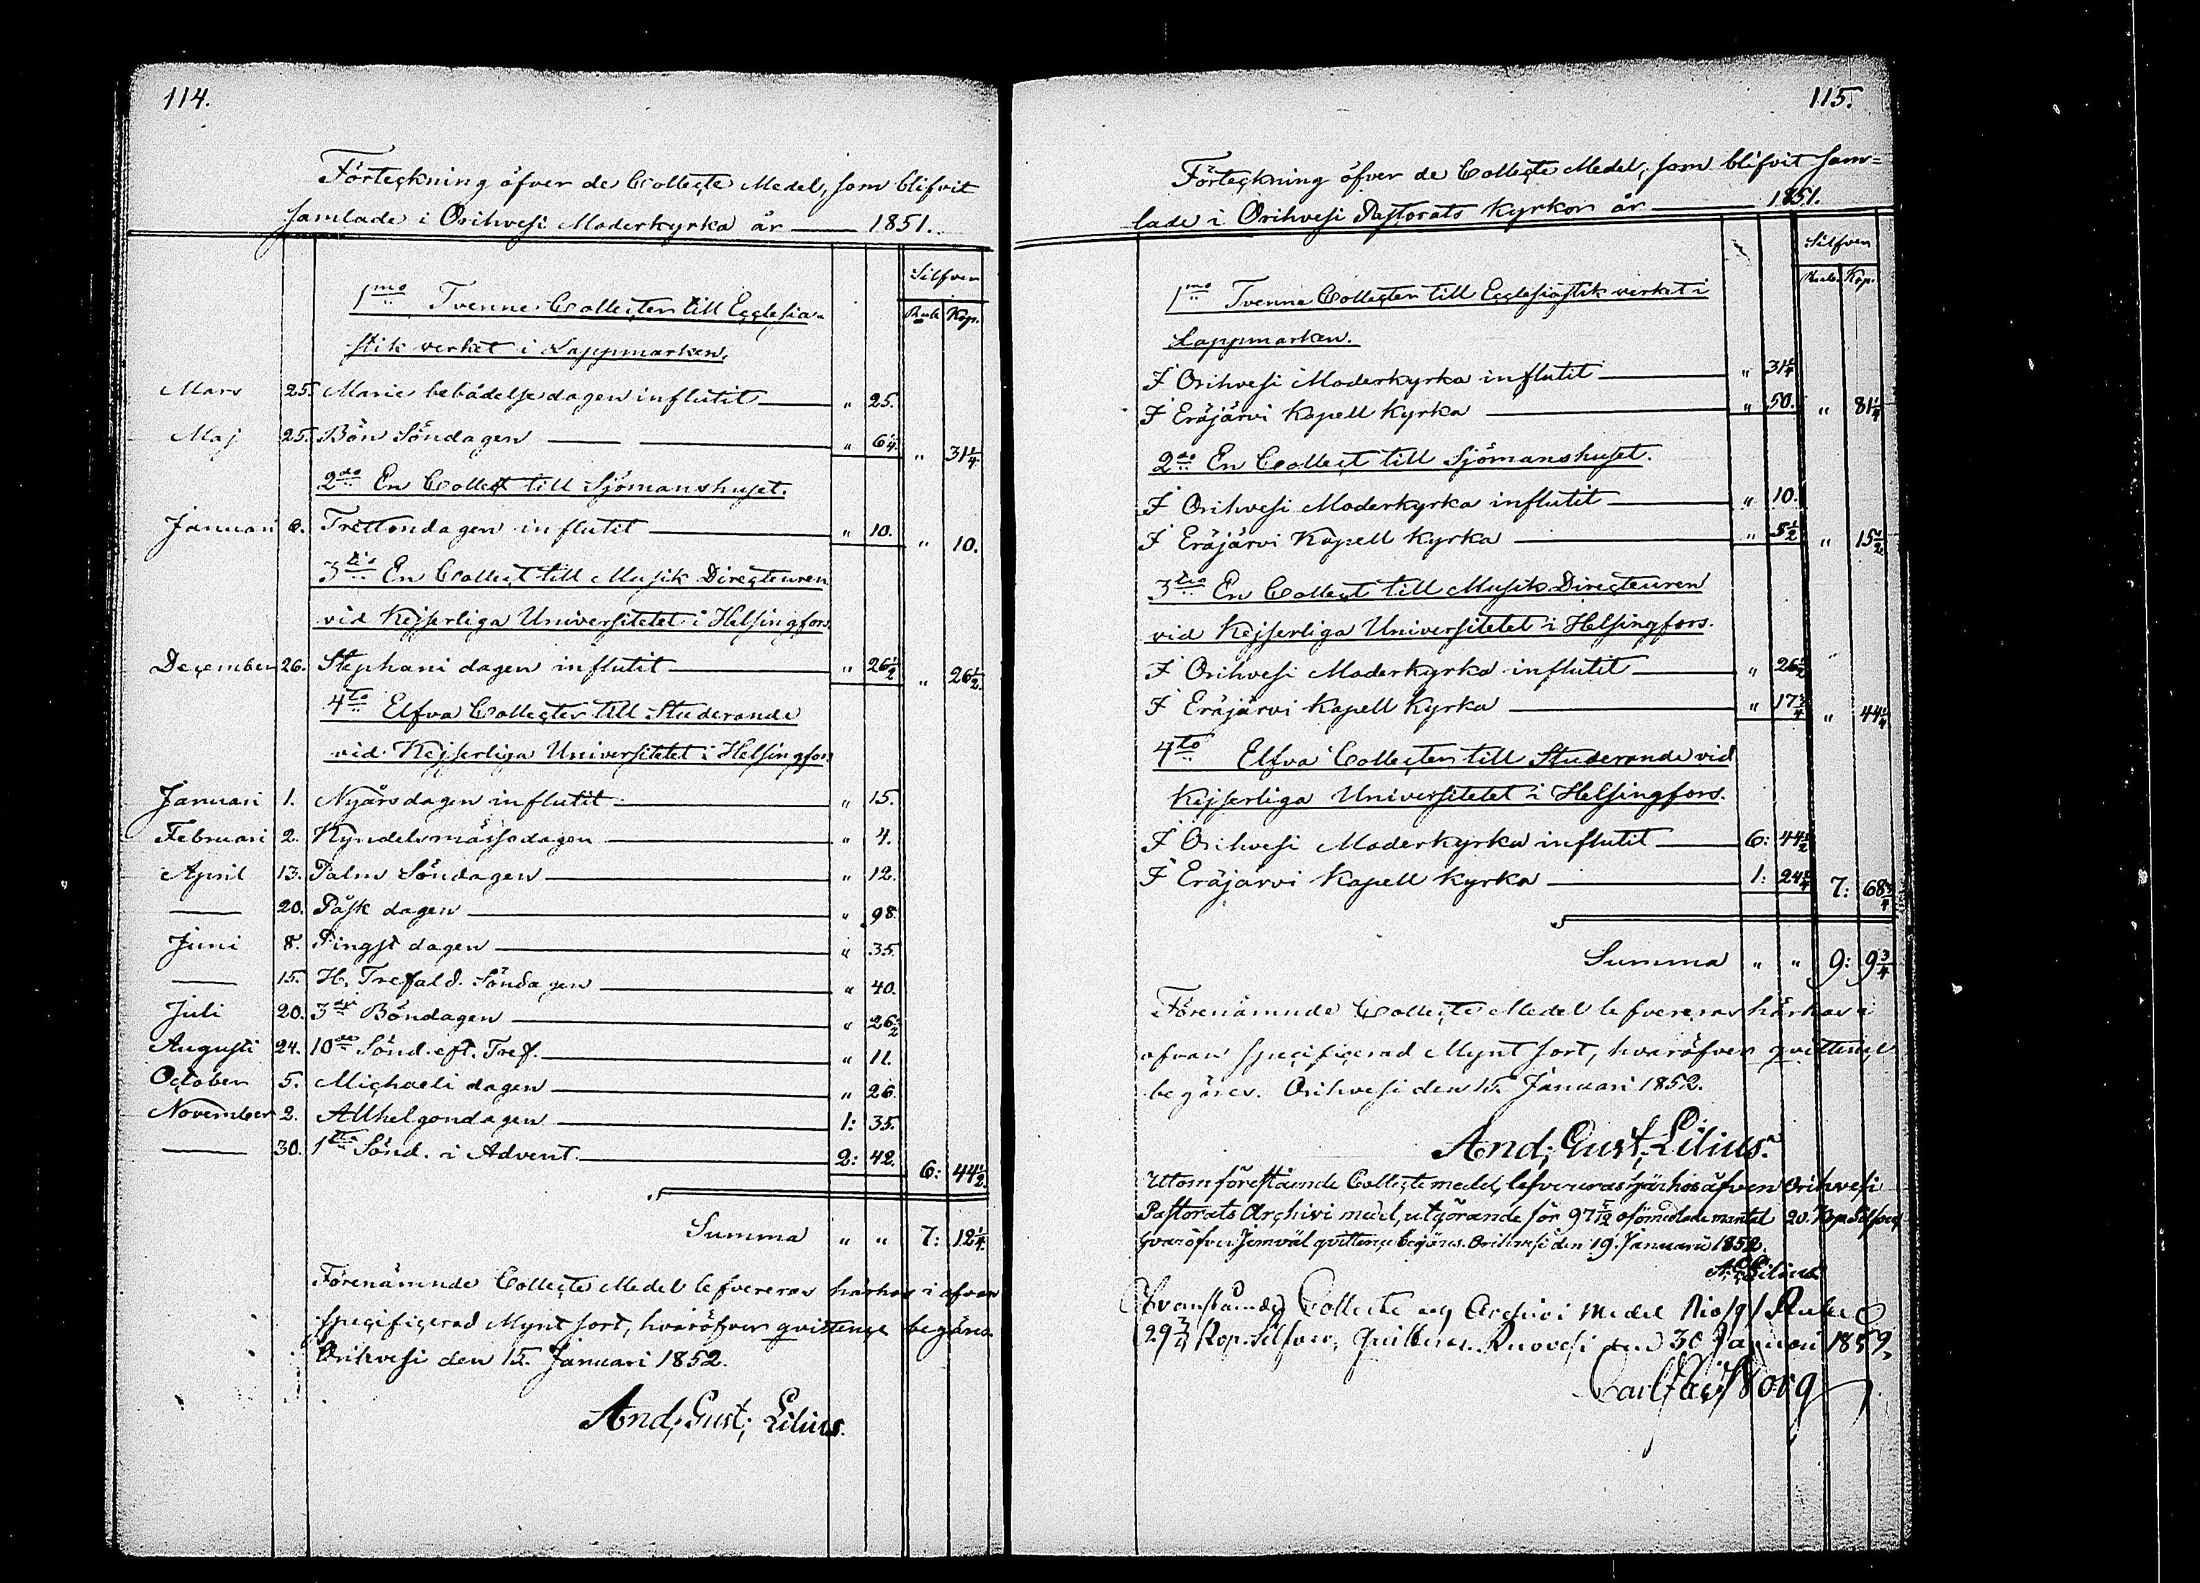 114.
Förteckning öfver de Collecte Medel, som blifvit
samlade i Orihvesi Moderkyrka år — 1851.
Silfver
Rub. Kop.
1mo Tvenne Collecter till Ecclesia-
stik verket i Lappmarken.
Mars 25. Mariæ bebådelse dagen influtit — " 25.
Maj 25. Bön Söndagen — " 6 1/4. " 31 1/4
2do En Collect till Sjömanshuset.
Januari 6. Trettondagen influtit — " 10. " 10.
3tio En Collect till Musik Directeuren
vid Kejserliga Universitetet i Helsingfors.
December 26. Stephani dagen influtit — " 26 1/2 " 26 1/2.
4to Elfva Collecter till Studerande
vid Kejserliga Universitetet i Helsingfors
Januari 1. Nyårsdagen influtit — " 15.
Februari 2. Kyndelsmässodagen — " 4.
April 13. Palm Söndagen — " 12.
— 20. Påsk dagen — " 98.
Juni 8. Pingst dagen — " 35.
— 15. H. Trefald. Söndagen — " 40.
Juli 20. 3die Böndagen — " 26 1/2
Augusti 24. 10de Sönd. eft. Tref. — " 11.
October 5. Michaeli dagen — " 26.
November 2. Allhelgondagen — 1: 35.
— 30. 1sta Sönd. i Advent. — 2: 42. 6: 44 1/2.
Summa " " 7: 12 1/4.
Förenämnde Collecte Medel lefvereras härhos i ofvan
specificerad Mynt sort, hvaröfver qvittence begäres
Orihvesi den 15. Januari 1852.
And; Gust; Lilius.
115.
Förteckning öfver de Collecte Medel, som blifvit sam-
lade i Orihvesi Pastorats Kyrkor år — 1851.
Silfver
Rub. Kop.
1mo Tvenne Collecter till Ecclesiastik verket i
Lappmarken.
I Orihvesi Moderkyrka influtit — " 31 1/4
I Eräjärvi Kapell Kyrka — " 50. " 81 1/4
2do En Collect till Sjömanshuset.
I Orihvesi Moderkyrka influtit — " 10.
I Eräjärvi Kapell Kyrka — " 5 1/2 " 15 1/2
3tio En Collect till Musik Directeuren
vid Kejserliga Universitetet i Helsingfors.
I Orihvesi Moderkyrka influtit — " 26 1/2
I Eräjärvi Kapell Kyrka — " 17 3/4 " 44 1/4
4to Elfva Collecter till Studerande vid
Kejserliga Universitetet i Helsingfors.
I Orihvesi Moderkyrka influtit — 6: 44 1/2
I Eräjärvi Kapell Kyrka — 1: 24 1/4 7: 68 3/4
Summa " " 9: 9 3/4
Förenämnde Collecte Medel lefvereras härhos i
ofvan specificerad Mynt sort, hvaröfver qvittence
begäres. Orihvesi den 15. Januari 1852.
And; Gust; Lilius.
Utom förestående Collecte medel, lefvereras härhos äfven Orihvesi
Pastorats Archivi medel, utgörande för 97 5/12 oförmedlade mantal 20. Kop. Silfver
hvaröfver jemväl qvittence begäres. Orihvesi den 19. Januarii 1852.
A. G. Lilius
Ofvanstående Collecte och Archivi medel Nio /9/ Rubel
29 3/4 Kop. Silfver, Quitteras. Ruovesi den 30 Januari 1852,